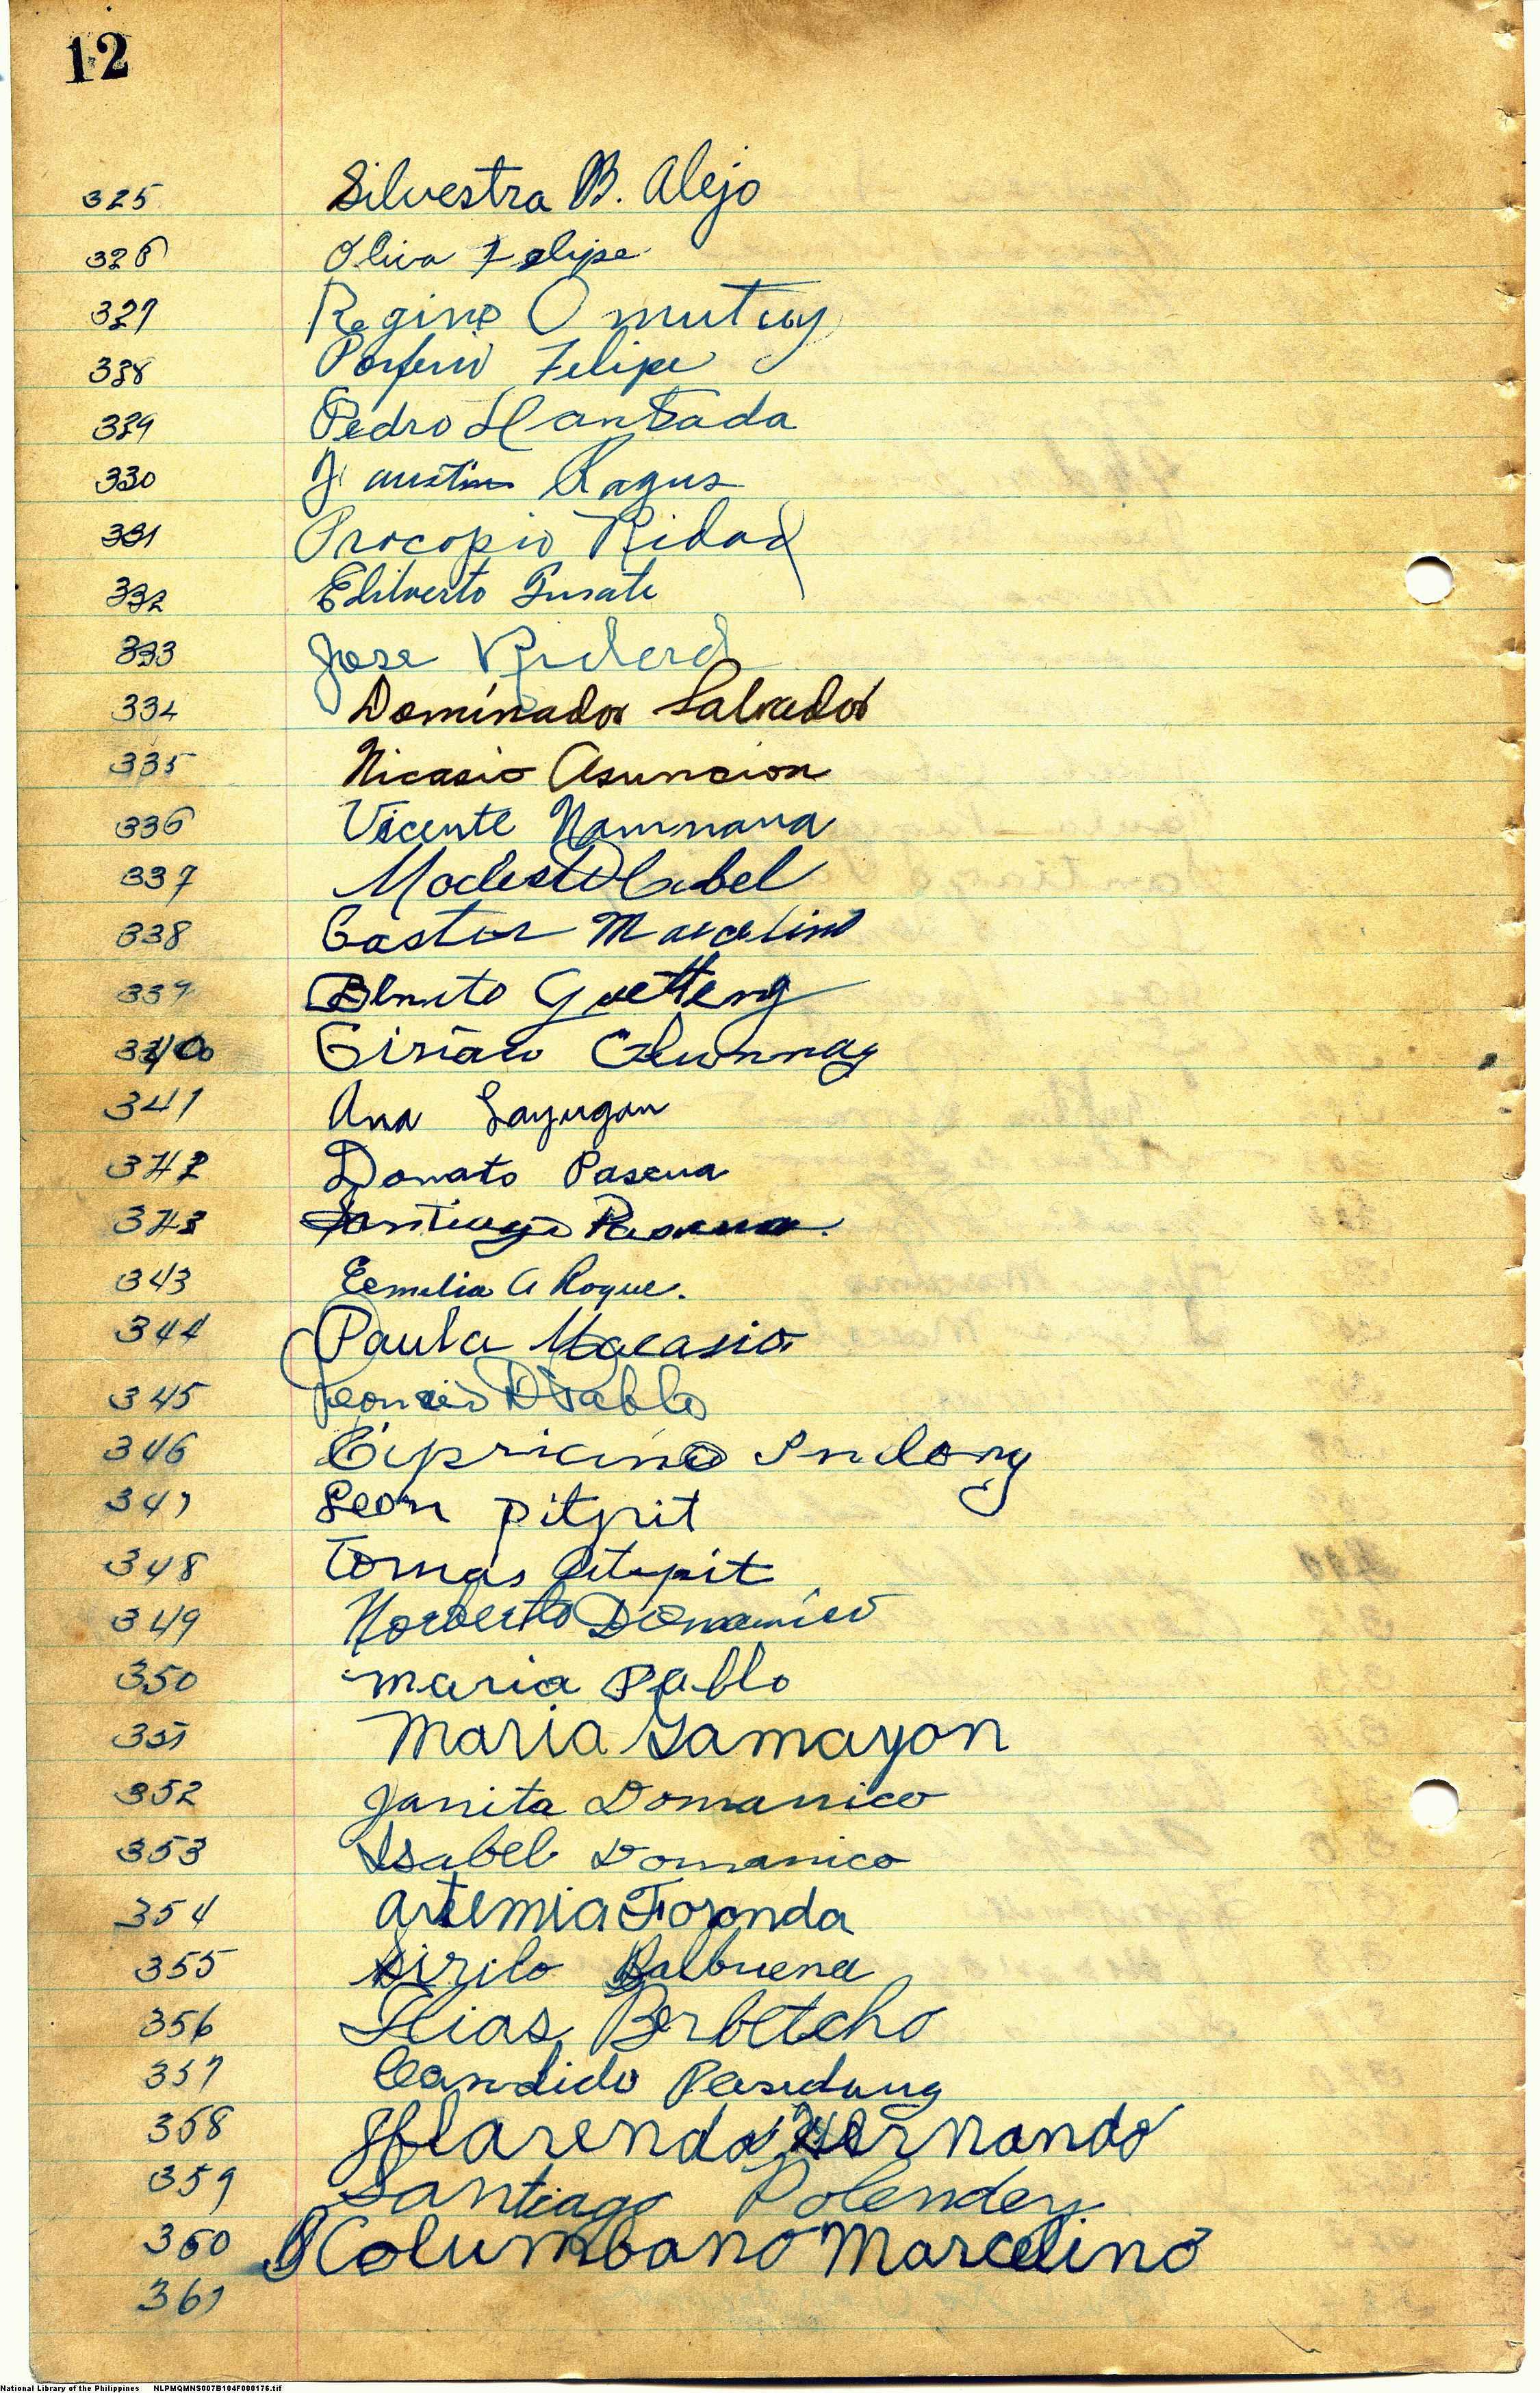 12
325 Silvestra B. Alejo
326 Oliva Felipe
327 Regino Omutuy
328 Porferio Felipe
329 Pedro Hantada
330 Faustino Ragus
331 Procopio Ridad
332 Edilverto
333 Jose
334 Dominador Salvador
335 Nicasio Asuncion
336 Vicente Namnama
337 Modesto
338 Castor Marcelino
339 Benito Guetteng
340
341 Ana Layugan
342 Donato Pascua
343 Santiago Pascua
343 Eemelia A Roque.
344 Paula Macasio
345 Leoncio Pablo
346 Cipriano Indong
347 Leon Pitpit
348 Tomas Pitpit
349 Norberto Domanico
350 maria Pablo
351 Maria Gamayon
352 Janita Domanico
353 Isabel Domanico
354 Artemia Foronda
355 Sirilo Balbuena
356 Elias Berbetcho
357 Candido
358 Hernando
359 Santiago Polendey
360 Columbano Marcelino
361
National Library of the Philippines NLPMQMNS007B104F000176.tif